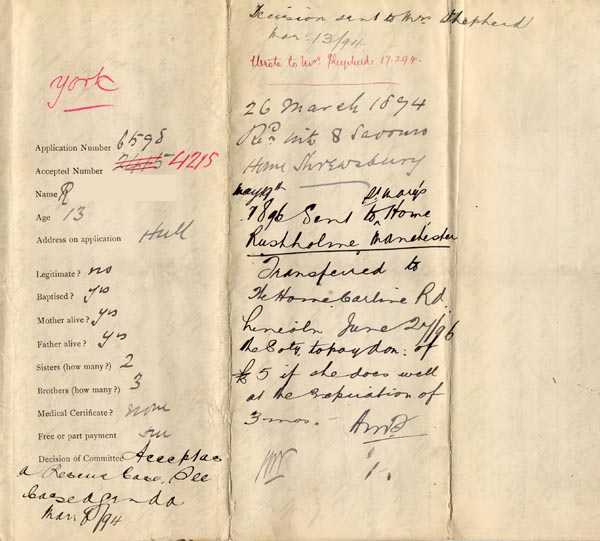 York
Application Number 6598
Accepted Number 4215
Name R
Age 13
Address on application Hull
Legitimate? no
Baptised? yes
Mother alive? yes
Father alive? yes
Sisters (how many?) 2
Brothers (how many?) 3
Medical Certificate? none
Free or part payment
Decision of Committee Accepted as
a Rescue Case. See
Case agenda
Mar. 8/94
Decision sent to Mrs Shepherd
Mar. 13/94
Wrote to Mrs Shepherd 17.3.94.
26 March 1894
Recd into S Saviours
Home Shrewsbury
May 19th St Mary's
1896 Sent to Home
Rushholme, Manchester
Transferred to
The Home Carline Rd.
Lincoln June 27/96
the Soty. to pay don: of
£5 if she does well
at the expiration of
3 mos.